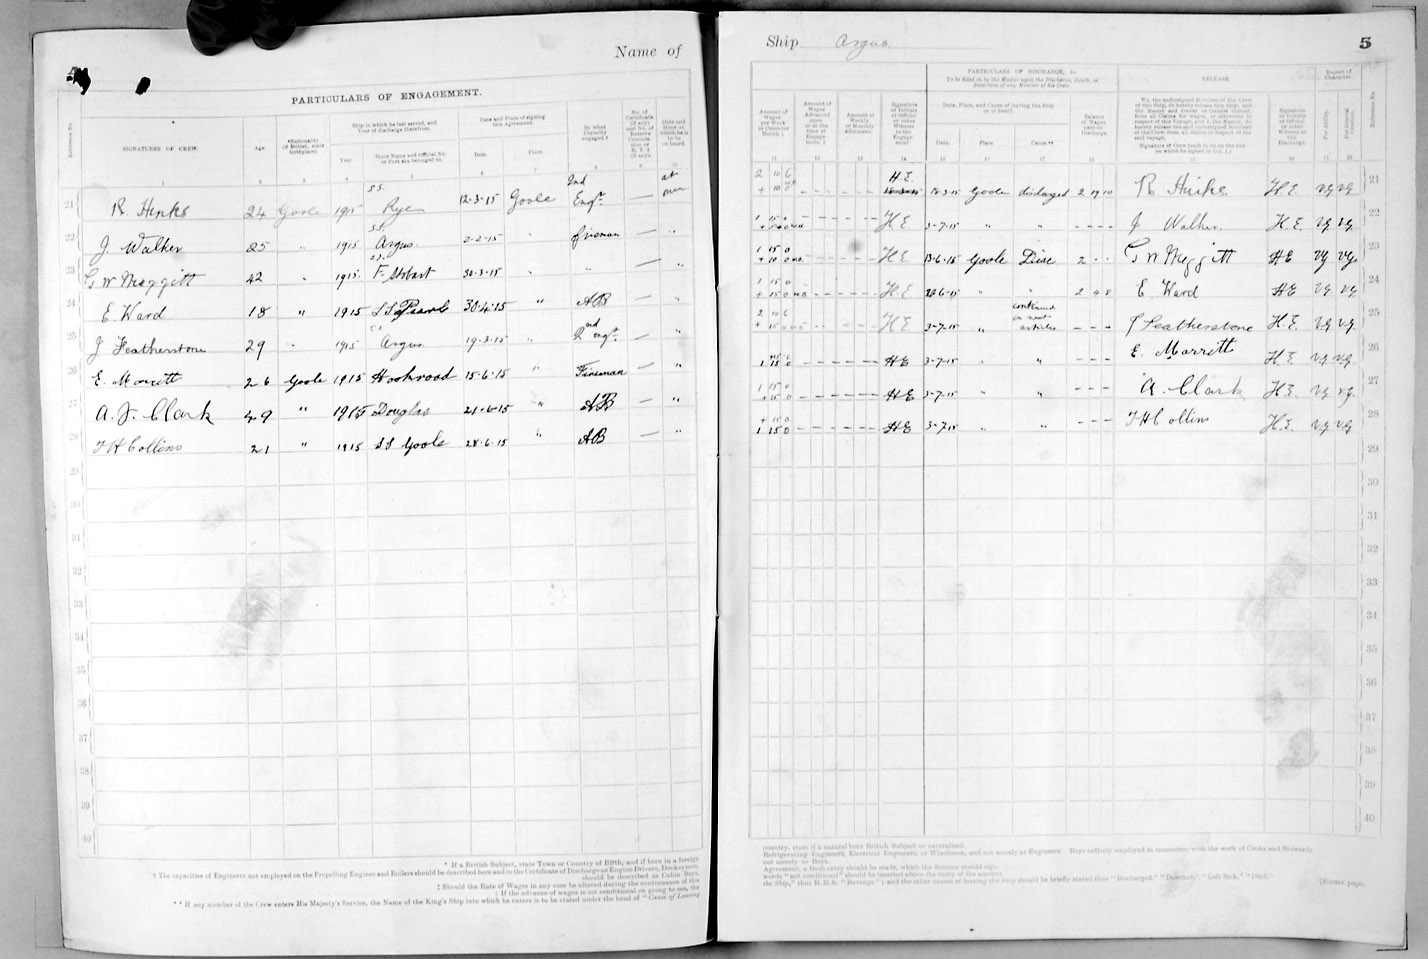 Name of
PARTICULARS OF ENGAGEMENT.
Reference No.
SIGNATURES OF CREW.
Age.
*Nationality (if British, state birthplace).
Ship in which he last served, and Year of discharge therefrom.
Year.
State Name and Official No. or Port she belonged to.
Date and Place of signing this Agreement.
Date.
Place.
In what Capacity engaged.†
No. of Certificate (if any)
Date and Hour at which he is to be on board.
1 2 3 4 5 6 7 8 9 10
21 R Hinks 24 Goole 1915 S.S. Rye 12-3-15 Goole 2nd Engr. — at once
22 J. Walker 25 " 1915 S.S. Argus 2-2-15 " fireman — "
23 G W Meggitt 42 " 1915 S.S. F. Stobart 30-3-15 " " — "
24 E. Ward 18 " 1915 S S 30-4-15 " AB — "
25 J Featherstone 29 " 1915 S.S. Argus 19-3-15 " 2nd engr. — "
26 E. Marritt 26 Goole 1915 15-6-15 " Fireman — "
27 A. J. Clark 49 " 1915 Douglas 21-6-15 " AB — "
28 T H Collins 21 " 1915 S S Goole 28-6-15 " AB — "
29
30
31
32
33
34
35
36
37
38
39
40
* If a British Subject, state Town or Country of Birth, and if born in a foreign
† The capacities of Engineers not employed on the Propelling Engines and Boilers should be described here and in the Certificate of Discharge as Engine Drivers, Donkeymen,
should be described as Cabin Boys,
‡ Should the Rate of Wages in any case be altered during the continuance of this
‡ If the advance of wages is not conditional on going to sea, the
** If any member of the Crew enters His Majesty's Service, the Name of the King's Ship into which he enters is to be stated under the head of "Cause of Leaving
Ship Argus 5
PARTICULARS OF DISCHARGE, &c.
To be filled in by the Master upon the Discharge, Death, or Desertion of any Member of his Crew
RELEASE.
Report of Character
Amount of Wages per Week or Calendar Month
Amount of Wages Advanced upon or at the time of Engagement.
Amount of Weekly or Monthly Allotment.
Signature or Initials of Official or other Witness to the Engagement
Date, Place, and Cause of leaving the Ship or of Death.
Date.
Place
Cause.**
Balance of Wages paid on Discharge.
We, the undersigned Members of the Crew of this Ship, do hereby release this Ship, and the Master and Owner or Owners thereof, from all Claims for wages, or otherwise in respect of this Voyage; and I, the Master, do hereby release the said undersigned Members of the Crew from all claims in respect of the said voyage.
Signature of Crew (each to be on the line on which he signed in Col. 1.)
Signature or Initials of Official or other Witness to the Discharge.
For Ability.
For General Conduct.
Reference No.
11 12 13 14 15 16 17 18 19 20 21 22
2 10 6 + 10 0 H.E. 18-3-15 Goole discharged 2 19 10 R Hinks H E v.g v.g 21
1 15 0 H E 3-7-15 " " - - - J Walker. H. E. v.g v.g. 22
1 15 0 + 10 0 H E 13-6-15 Goole Disc 2 - - G W Meggitt H E v.g v.g. 23
1 15 0 + 15 0 H E " " 2 4 8 E. Ward H E v.g v.g 24
2 10 6 H E 3-7-15 " continued on next articles - - - J Featherstone H.E. v.g v.g 25
1 15 0 H E 3-7-15 " " - - - E. Marritt H E v.g v.g. 26
1 15 0 + 15 0 H E 3-7-15 " " - - - A. Clark H E v.g v.g. 27
+ 15 0 1 15 0 H E 3-7-15 " " - - - T H Collins H.E. v.g v.g 28
29
30
31
32
33
34
35
36
37
38
39
40
country, state if a natural born British Subject or naturalized.
Refrigerating Engineers, Electrical Engineers, or Winchmen, and not merely as Engineers. Boys entirely employed in connection with the work of Cooks and Stewards
not merely as Boys.
Agreement, a fresh entry should be made, which the Seaman should sign.
words "not conditional" should be inserted above the entry of the amount.
the Ship," thus H.M.S. "Revenge"; and the other causes of leaving the Ship should be briefly stated thus "Discharged," "Deserted," "Left Sick," "Died."
(Sixteen pages